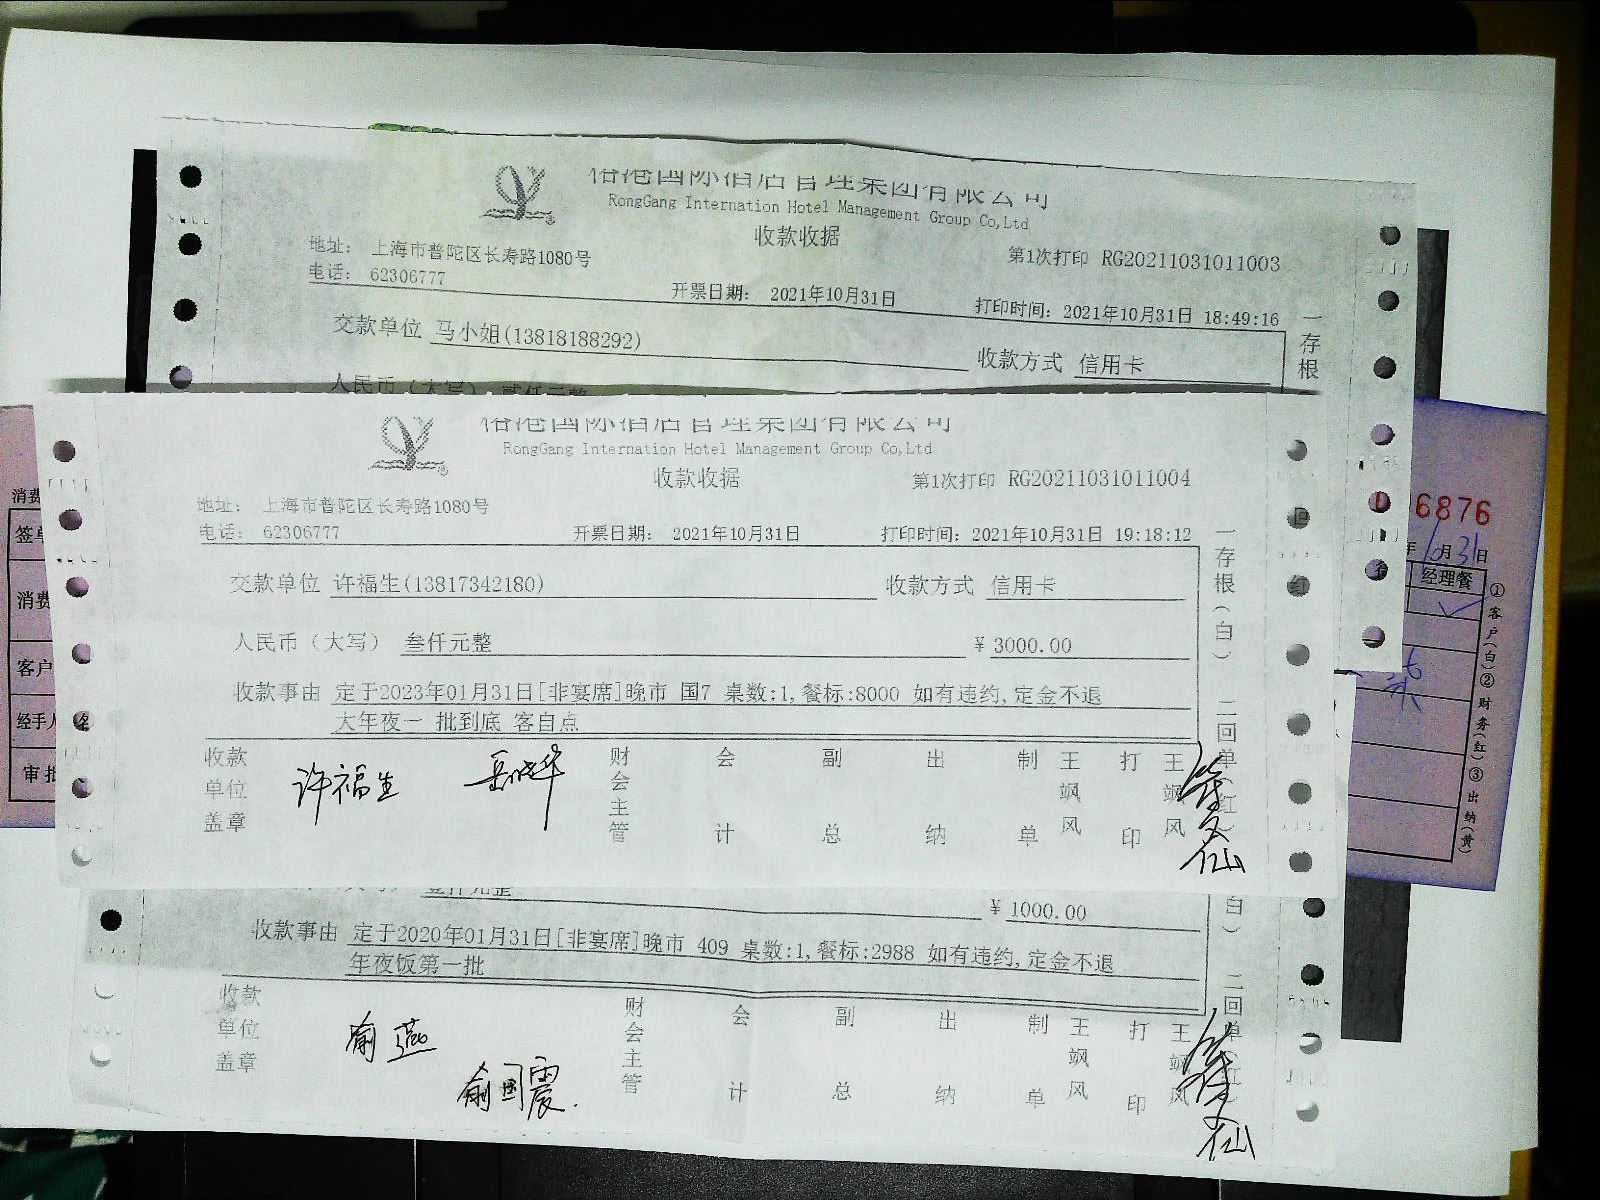 国际酒店管理集团有限公司
RongGang Internation Hotel Management Group Co,Ltd
收款收据
地址： 上海市普陀区长寿路1080号
第1次打印 RG20211031011003
电话： 62306777
开票日期： 2021年10月31日
打印时间：2021年10月31日 18:49:16
交款单位 马小姐(13818188292)
收款方式 信用卡
一存根
人民币（大写） 贰仟元整
国际酒店管理集团有限公司
RongGang Internation Hotel Management Group Co,Ltd
收款收据
第1次打印 RG20211031011004
地址： 上海市普陀区长寿路1080号
电话： 62306777
开票日期： 2021年10月31日
打印时间：2021年10月31日 19:18:12
交款单位 许福生(13817342180)
收款方式 信用卡
人民币（大写） 叁仟元整
¥ 3000.00
收款事由 定于2023年01月31日[非宴席]晚市 国7 桌数:1,餐标:8000 如有违约,定金不退
大年夜一 批到底 客自点
收款单位盖章
许福生
财会主管
会计
副总
出纳
制单
王飒风
打印
王飒风
一存根（白）
二回单（红）
壹仟元整
¥ 1000.00
收款事由 定于2020年01月31日[非宴席]晚市 409 桌数:1,餐标:2988 如有违约,定金不退
年夜饭第一批
收款单位盖章
俞燕
俞国震.
财会主管
会计
副总
出纳
制单
王飒风
打印
王飒风
白）
二回单（红）
消费
签单
消费
客户
经手人
审批
6876
年10月31日
经理餐
①客户（白）②财务（红）③出纳（黄）